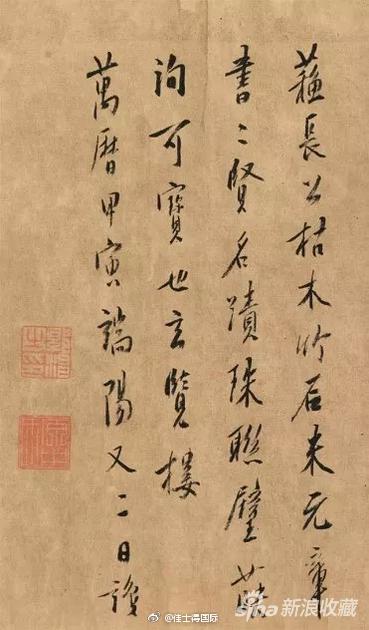 蘓長公枯木竹石米元章
書二賢名蹟珠聯璧
洵可寶也玄覽樓
萬曆甲寅端陽又二日識
sina 新浪收藏
@佳士得国际